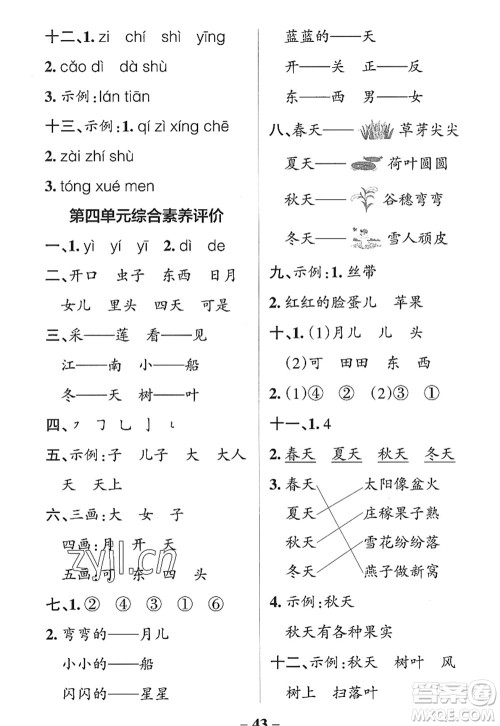 十二、1. zi chí shì yīng
2. cǎo dì dà shù
3. 示例: lán tiān
十三、示例: 1. qí zì xíng chē
2. zài zhí shù
3. tóng xué men
第四单元综合素养评价
一、1. yì yí yī 2. dì de
二、开口 虫子 东西 日月
女儿 里头 四天 可是
三、采——莲 看——见
江——南 小——船
冬——天 树——叶
四、㇇ ㇆ 乚 亅 ㇊
五、示例: 子 儿子 大 大人
天 天天
六、三画: 大 女 子
四画: 月 开 天
五画: 可 东 四 头
七、1. ② ④ ① ③
2. 弯弯的——月儿
小小的——船
闪闪的——星星
蓝蓝的——天
开——关 正——反
东——西 男——女
八、春天 草芽尖尖
夏天 荷叶圆圆
秋天 谷穗弯弯
冬天 雪人顽皮
九、示例: 1. 丝带
2. 红红的脸蛋儿 苹果
十、1. (1)月儿 儿 头
(2)可 田田 东 西
2. (1)④ (2)① ② ③
十一、1. 4
2. 春天 夏天 秋天 冬天
3. 春天 太阳像盆火
夏天 庄稼果子熟
秋天 雪花纷纷落
冬天 燕子做新窝
4. 示例: 秋天
秋天有各种果实
十二、示例: 秋天 树叶 风
树上 扫落叶
– 43 –
zyjl.cn
答案圈
MXQE.COM